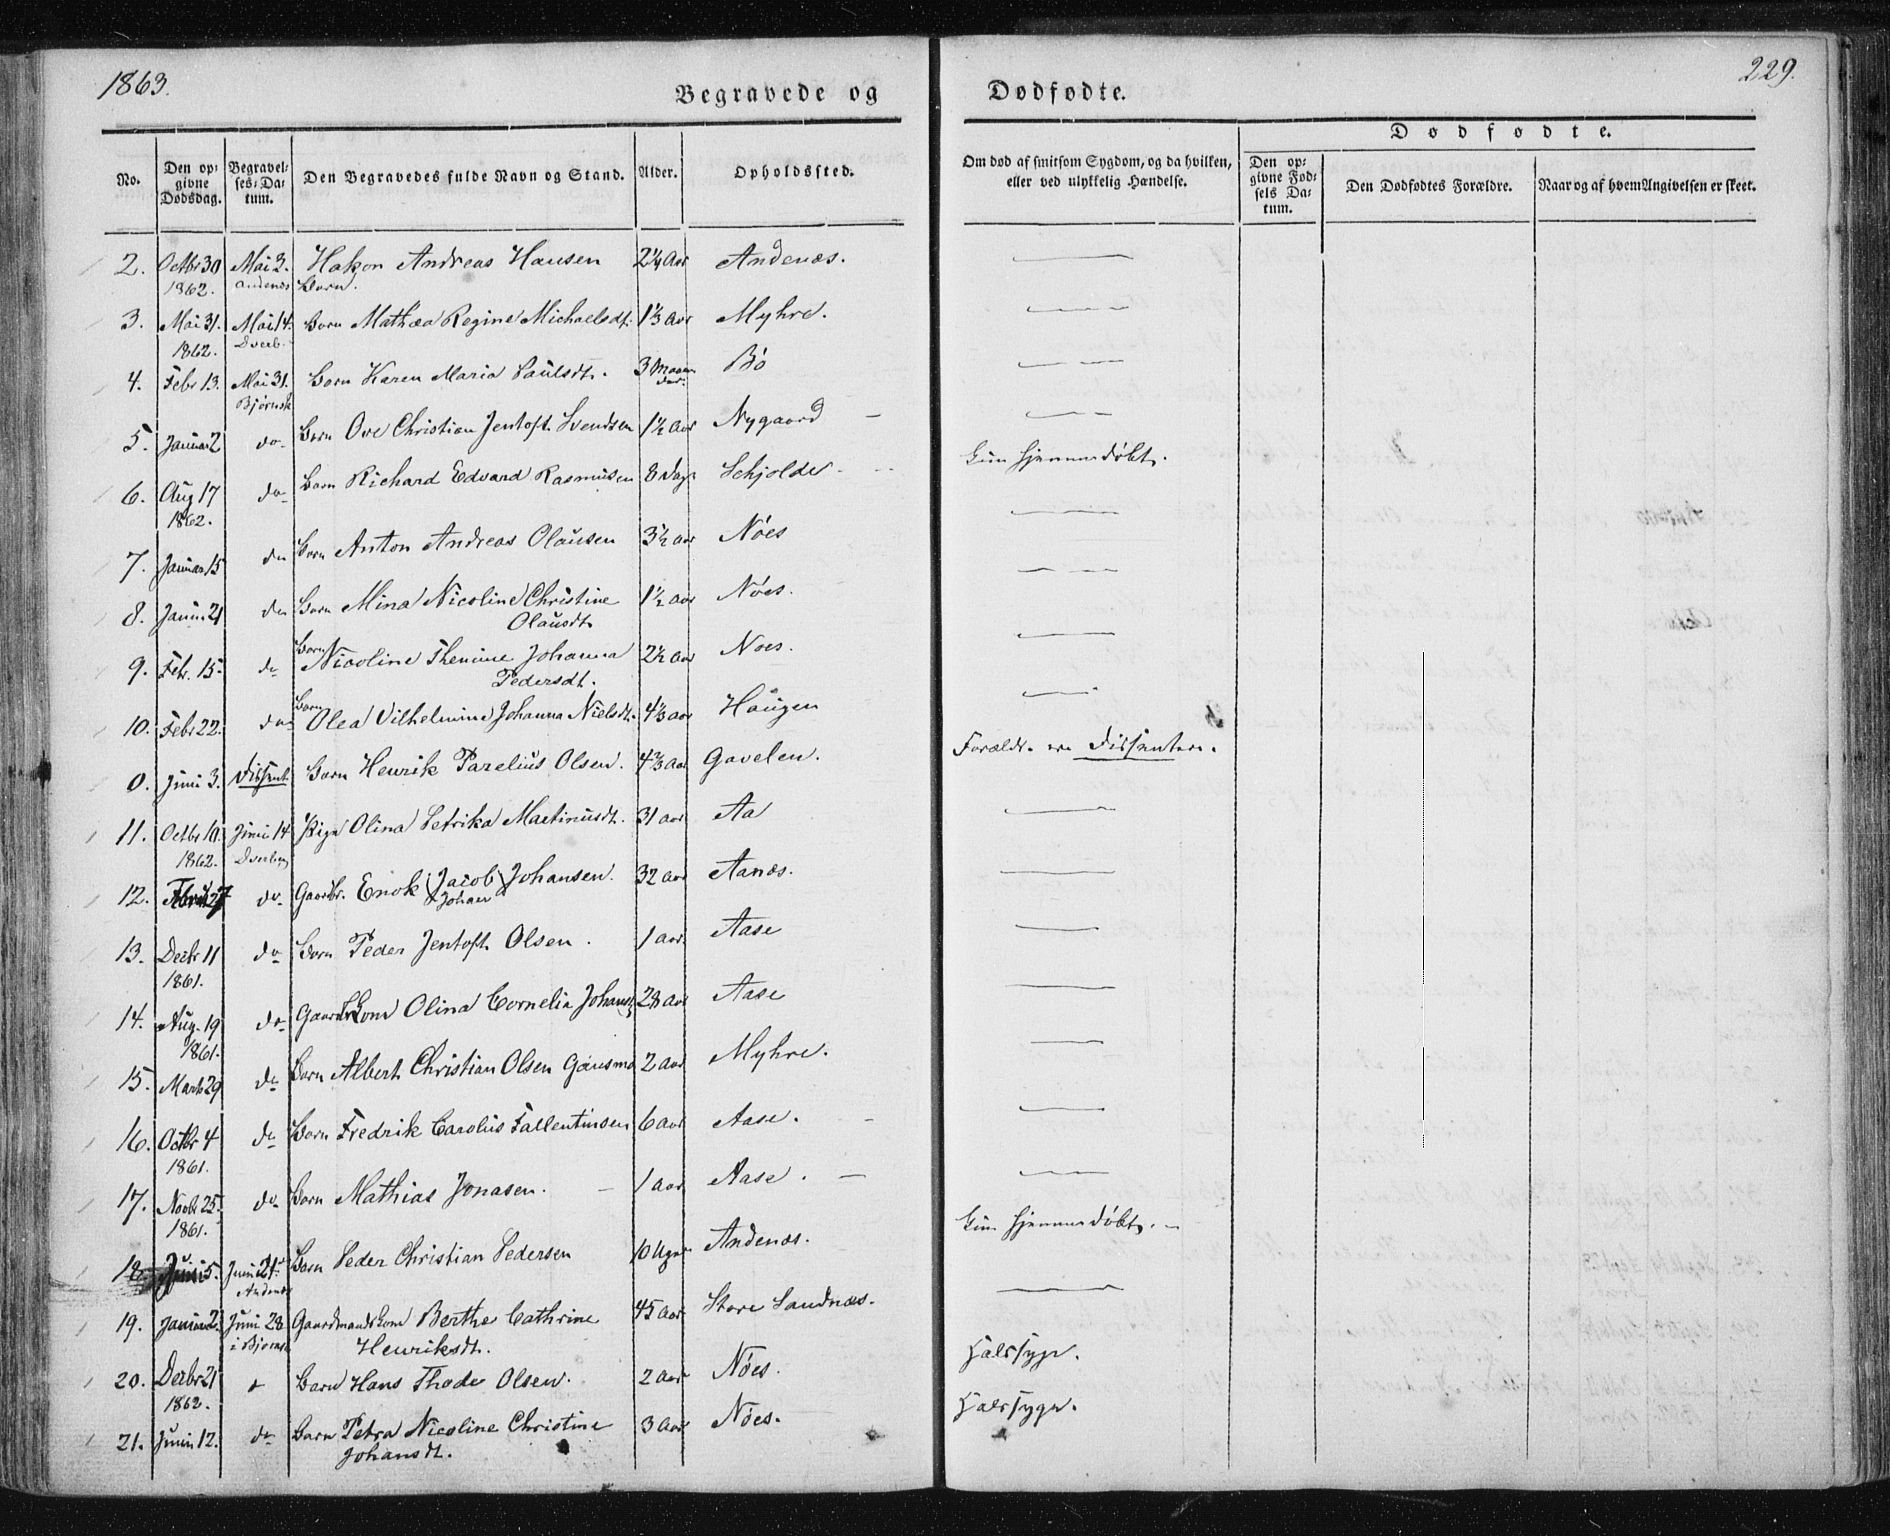 1863.
Begravede og
Dødfødte.
229.
No.
Den op-
givne
Dødsdag.
Begravel-
ses-Da-
tum.
Den Begravedes fulde Navn og Stand.
Alder.
Opholdssted.
Om død af smitsom Sygdom, og da hvilken,
eller ved ulykkelig Hændelse.
Dødfødte.
Den op-
givne Fød-
sels Da-
tum.
Den Dødfødtes Forældre.
Naar og af hvem Angivelsen er skeet.
2. Octbr 30 Mai 3. Hakon Andreas Hansen 2¼ Aar Andenæs.
1862. Andenæs Barn.
3. Mai 31. Mai 14. Barn Mathea Regine Michaelsdt. 1⅓ Aar Myhre.
1862. Dverb.
4. Febr 13. Mai 31. Barn Karen Maria Paulsdt. 3 Maane- Bö
Björnsk. der.
5. Januar 2 do Barn Ove Christian Jentoft Svendsen 1½ Aar Nygaard
6. Aug 17 do Barn Richard Edvard Rasmusen 8 Dage Schjolde Kun hjemmedöbt.
1862.
7. Januar 15 do Barn Anton Andreas Olausen 3½ aar Nöes
8. Janur 21 do Barn Mina Nicoline Christine 1½ aar Nöes.
Olausdt.
9. Febr. 15. do Barn Nicoline Johanna 2½ Aar Noes.
Pedersdt.
10. Febr 22. do Barn Olea Vilhelmine Johanna Nielsdt. 4⅓ aar Haugen
0. Juni 3. Dissent. Barn Henrik Parelius Olsen. 4⅔ Aar Gavelen. Forældr. ere Dissentere.
11. Octbr 10. Juni 14 Pige Olina Petrika Martinusdt. 31 aar Aa
1862. Dverberg
12. 27 do Gaardbr. Enok (Jacob) Johansen. 32 aar Aanæs.
Johan
13. Decbr 11 do Barn Peder Jentoft Olsen. 1 aar. Aase
1861.
14. Aug. 19 do Olina Cornelia Johansdt 28 aar Aase
1861.
15. Marts 29 do Barn Albert Christian Olsen Gausmo 2 aar Myhre.
16. Octbr 4 do Barn Fredrik Carolus Fallentinsen 6 aar Aase.
1861.
17. Novbr 25. do Barn Mathias Jonasen. 1 aar Aase.
1861.
18. Juni 5. Juni 21 Barn Peder Christian Pedersen 10 Uger Andenæs. Kun hjemmedöbt.
Andenæs
19. Januar 2 Juni 28 Gaardmandskone Berthe Cathrine 45 aar Store Sandnæs.
i Bjornsk Henriksdt.
20. Decbr 21 Barn Hans Thode Olsen. 2 aar Nöes. Halssyge.
1862.
21. Juni 12. do Barn Petra Nicoline Christine 3 aar Nöes. Halssyge.
Johansdt.